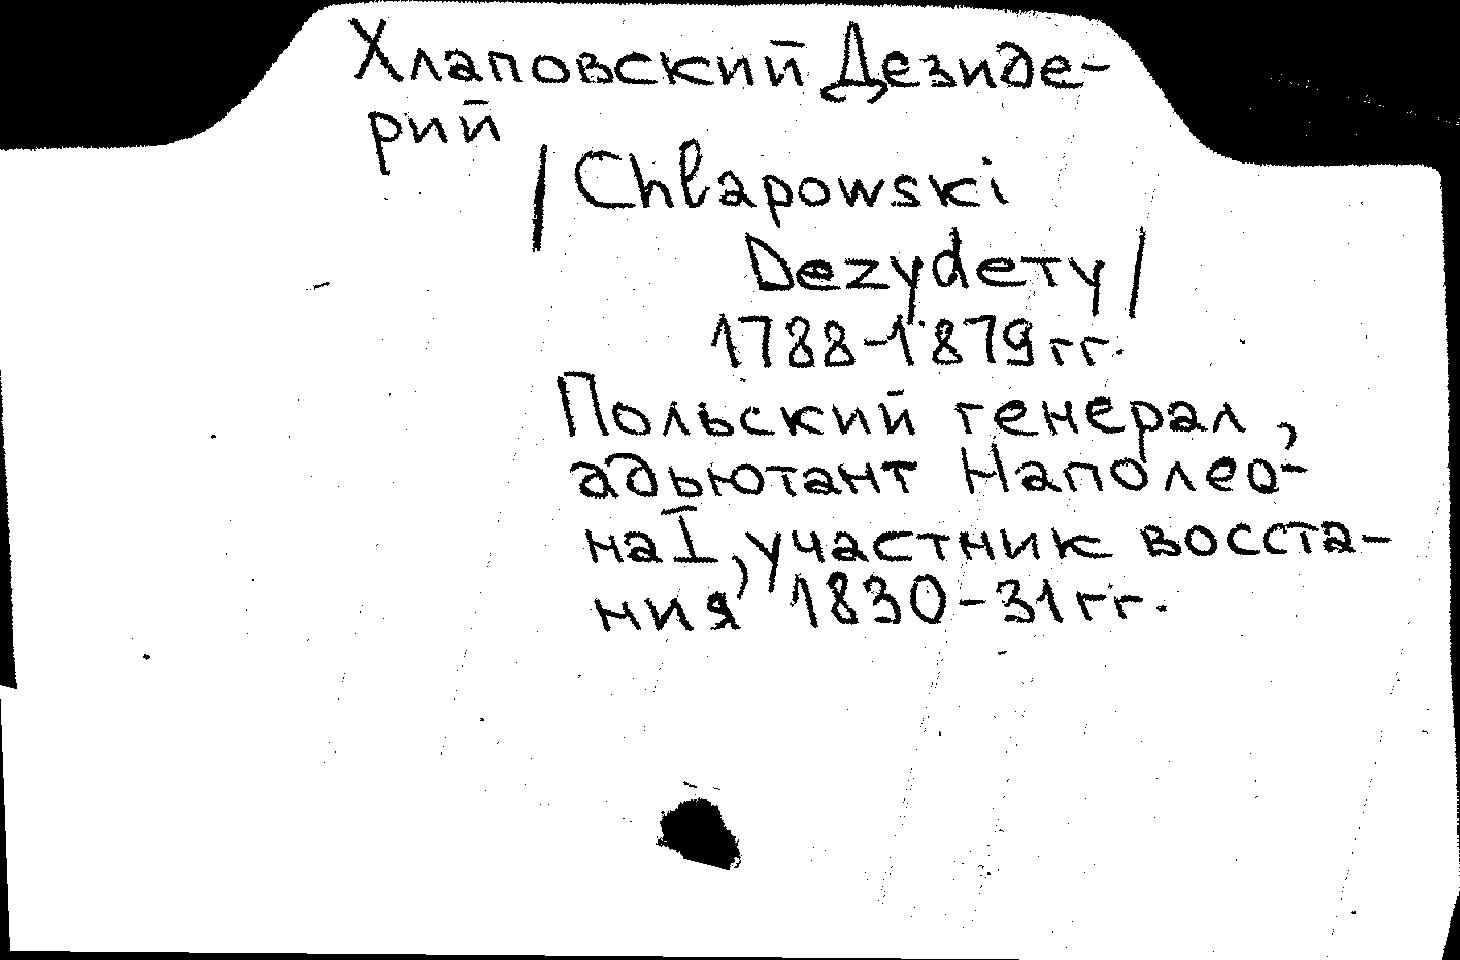 Хлаповский Дезиде-
рий
/Chlapowski
Dezydety/
1788-1879 гг.
Польский генерал,
адьютант Наполео-
на I, участник восста-
ния 1830-31 гг.